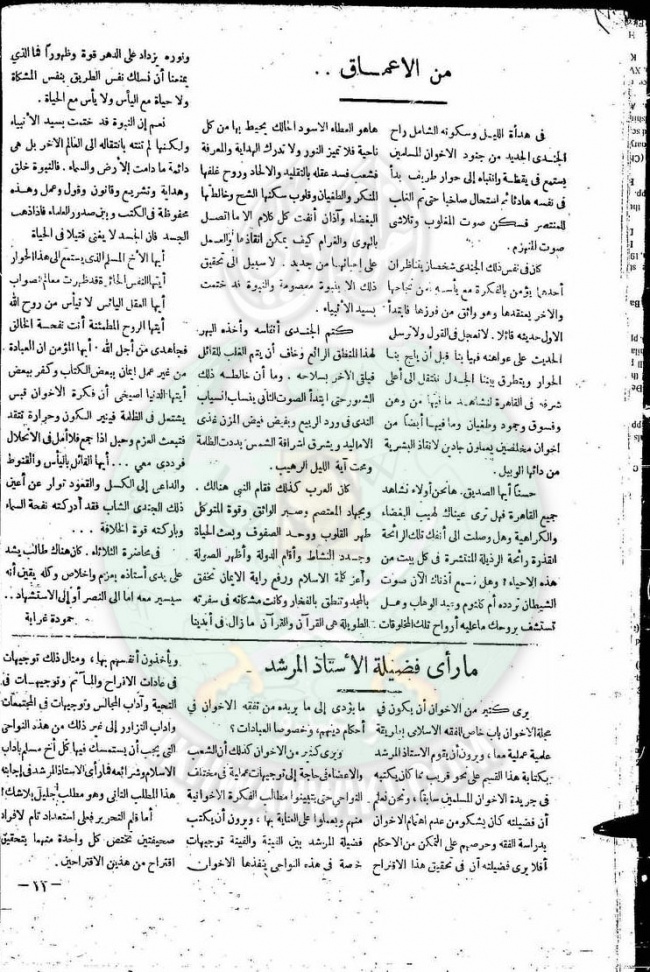 من الأعماق ..
فى هدأة الليل وسكونه الشامل راح
الجندى الجديد من جنود الاخوان المسلمين
يستمع فى يقظة وانتباه إلى حوار طريف بدأ
فى نفسه هادئا ثم استحال صاخبا حتى تم الغلب
للمنتصر فسكن صوت المغلوب وتلاشى
صوت المنهزم .
كان فى نفس ذلك الجندى شخصان يتناظران
أحدهما يؤمن بالفكرة مع يأسه من نجاحها
والآخر يعتقدها وهو واثق من فوزها فابتدأ
الاول حديثه قائلا . لا تعجل فى القول ولا ترسل
الحديث على عواهنه فهيا بنا قبل أن يلج بنا
الحوار ويتطرق بيننا الجدل ننتقل إلى أعلى
شرفة فى القاهرة لنشاهد ما فيها من وهن
وفسوق وجمود وطغيان وما فيها أيضا من
اخوان مخلصين يعملون جادين لانقاذ البشرية
من دائها الوبيل .
حسنا أيها الصديق . ها نحن أولاء نشاهد
جميع القاهرة فهل ترى عيناك لهيب البغضاء
والكراهية وهل وصلت الى أنفك تلك الرائحة
القذرة رائحة الرذيلة المنتشرة فى كل بيت من
هذه الاحياء ؟ وهل تسمع أذناك الآن صوت
الشيطان تردده أم كلثوم وعبد الوهاب وهل
تستشف بروحك ما عليه أرواح تلك المخلوقات
ها هو الغطاء الاسود الحالك يحيط بها من كل
ناحية فلا تميز النور ولا تدرك الهداية والمعرفة
فشعب فسد عقله بالتقليد والالحاد وروح غلفها
المنكر والطغيان وقلوب سكنها الشح وخالطها
البغضاء وآذان أنفت كل كلام الا ما اتصل
بالهوى والغرام كيف يمكن انقاذها والعمل
على إحيائها من جديد . لا سبيل الى تحقيق
ذلك الا بنبوة معصومة والنبوة قد ختمت
بسيد الأنبياء .
كتم الجندى أنفاسه وأخذه البهر
لهذا المنطق الرائع وخاف أن يتم الغلب للقائل
فيلقى الآخر بسلاحه . وما أن خالطه ذلك
الشعور حتى ابتدأ الصوت الثانى ينساب انسياب
الندى فى ورد الربيع ويفيض فيض المزن غذى
الأماليد ويشرق اشراقة الشمس بددت الظلمة
ومحت آية الليل الرهيب .
كان العرب كذلك فقام النبى هنالك .
وبجهاد المعتصم وصبر الواثق وقوة المتوكل
طهر القلوب ووحد الصفوف وبعث الحياة
وجدد النشاط وأقام الدولة وأظهر الصولة
وأعز كلمة الاسلام ورفع راية الايمان تخفق
بالمجد وتنطق بالفخار وكانت مشكاته فى سفرته
الطويلة هى القرآن والقرآن ما زال فى أيدينا
ونوره يزداد على الدهر قوة وظهورا فما الذى
يمنعنا أن نسلك نفس الطريق بنفس المشكاة
ولا حياة مع اليأس ولا يأس مع الحياة .
نعم إن النبوة قد ختمت بسيد الأنبياء
ولكنها لم تنته بانتقاله الى العالم الآخر بل هى
دائمة ما دامت الأرض والسماء . فالنبوة خلق
وهداية وتشريع وقانون وقول وعمل وهذه
محفوظة فى الكتب وبين صدور العلماء فاذا ذهب
الجسد فان الجسد لا يغنى فتيلا فى الحياة
أيها الأخ المسلم الذى يستمع الى هذا الحوار
أيتها النفس الحائرة قد ظهرت معالم الصواب
أيها العقل اليائس لا تيأس من روح الله
أيتها الروح المطمئنة أنت نفحة الخالق
فجاهدى من أجل الله . أيها المؤمن ان العبادة
من غير عمل إيمان ببعض الكتاب وكفر ببعض
أيتها الدنيا اصيخى أن فكرة الاخوان قبس
يشتعل فى الظلمة فينير السكون وحرارة تتقد
فتبعث العزم وحبل اذا جمع فلا أمل فى الانحلال
فرددى معى ... أيها القائل باليأس والقنوط
والداعى إلى الكسل والقعود توار عن أعين
ذلك الجندى الشاب فقد أدركته نفحة السماء
وباركته قوة الخلافة ..
فى محاضرة الثلاثاء . كان هناك طالب يشد
على يدى أستاذه بعزم واخلاص وكله يقين أنه
سيسير معه اما الى النصر أو إلى الاستشهاد ..
حمودة غرابة
ما رأى فضيلة الأستاذ المرشد
يرى كثير من الاخوان أن يكون فى
مجلة الاخوان باب خاص الفقه الاسلامى بطريقة
علمية عملية معا ، ويرون أن يقوم الاستاذ المرشد
بكتابة هذا القسم على نحو قريب مما كان يكتبه
فى جريدة الاخوان المسلمين سابقا ، ونحن نعلم
أن فضيلته كان يشكو من عدم اهتمام الاخوان
بدراسة الفقه وحرصهم على التمكن من الاحكام
أفلا يرى فضيلته أن فى تحقيق هذا الاقتراح
ما يؤدى إلى ما يريده من تفقه الاخوان فى
أحكام دينهم ، وخصوصا العبادات ؟
ويرى كثير من الاخوان كذلك أن الشعب
والاعضاء فى حاجة إلى توجيهات عملية فى مختلف
النواحى حتى يتبينوا مطالب الفكرة الاخوانية
منهم ويعملوا على العناية بها ، ويرون أن يكتب
فضيلة المرشد بين الفينة والفينة توجيهات
خاصة فى هذه النواحى ينفذها الاخوان
ويأخذون أنفسهم بها ، ومثال ذلك توجيهات
فى عادات الافراح والمآتم وتوجيهات فى
التحية وآداب المجالس وتوجيهات فى المجتمعات
وآداب التزاور إلى غير ذلك من هذه النواحى
التى يجب أن يستمسك فيها كل أخ مسلم بآداب
الاسلام وشرائعه فما رأى الاستاذ المرشد فى إجابته
هذا المطلب الثانى وهو مطلب جليل بلا شك !
أما قلم التحرير فعلى استعداد تام لافراد
صحيفتين تختص كل واحدة منهما بتحقيق
اقتراح من هذين الاقتراحين .
— ١٢ —